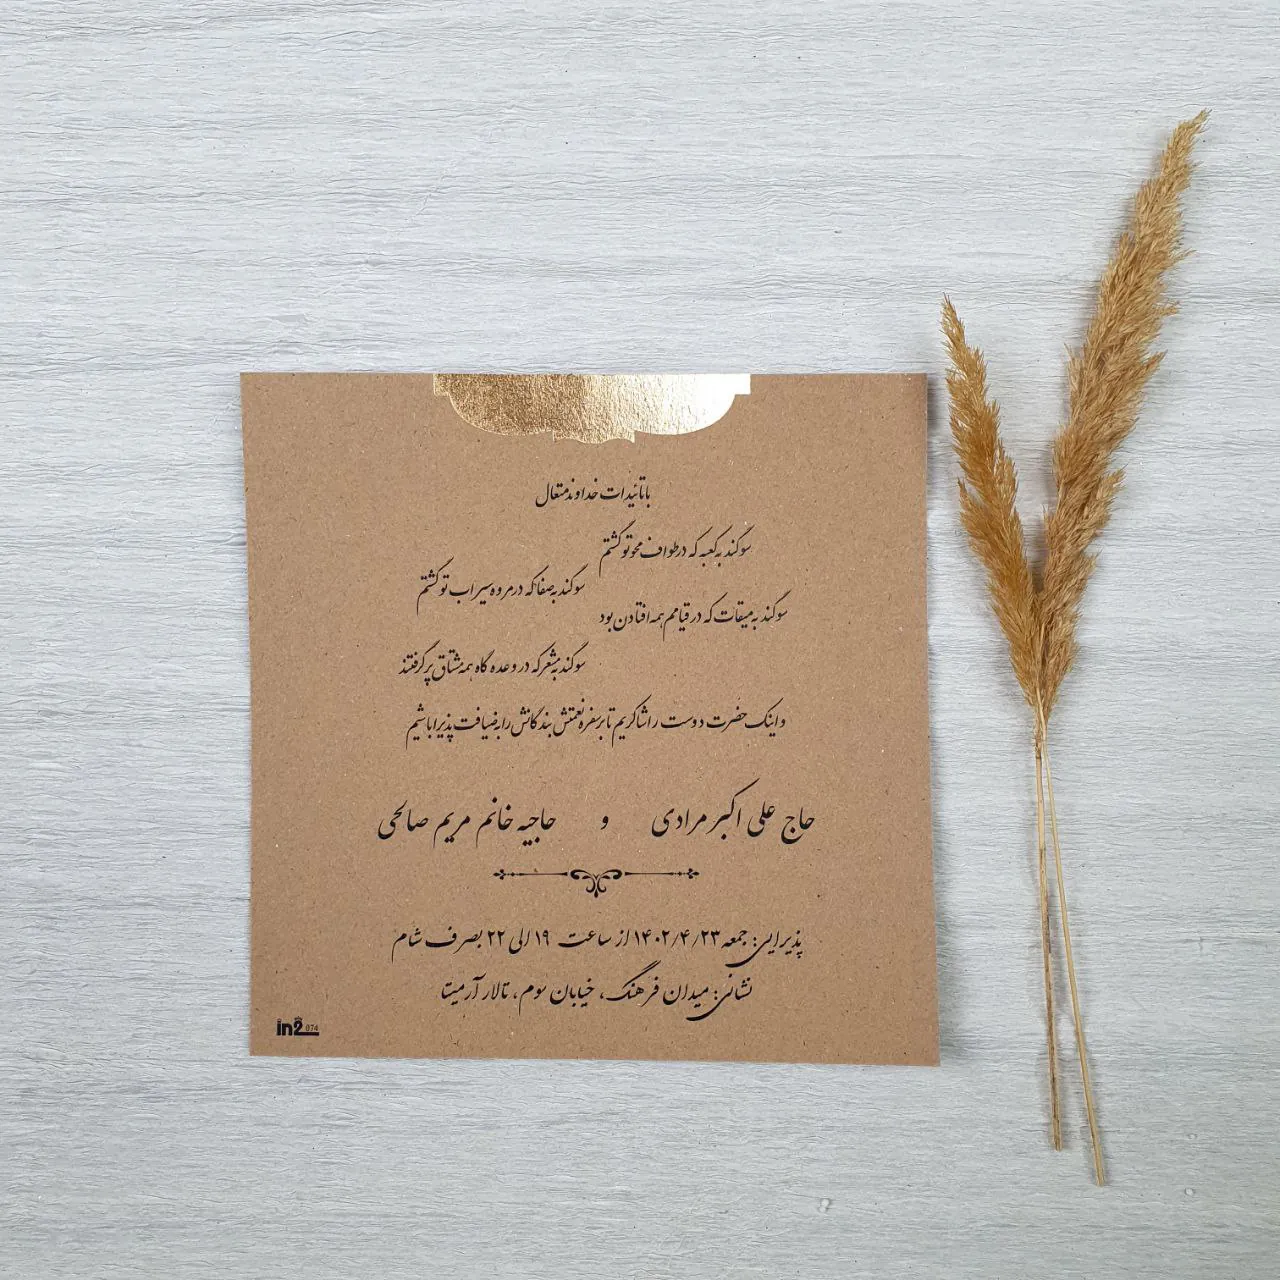 با تائیدات خداوند متعال
سوگند به کعبه که در طواف محو تو گشتم
سوگند به صفا که در مروه سیراب تو گشتم
سوگند به میقات که در قیامم همه افتادن بود
سوگند به مشعر که در وعده گاه همه مشتاق پر گرفتند
و اینک حضرت دوست را شاکریم تا بر سفره نعمتش بندگانش را به ضیافت پذیرا باشیم
حاج علی اکبر مرادی و حاجیه خانم مریم صالحی
پذیرایی: جمعه ۱۴۰۲/۴/۲۳ از ساعت ۱۹ الی ۲۲ بصرف شام
نشانی: میدان فرهنگ، خیابان سوم، تالار آرمیتا
in2 074